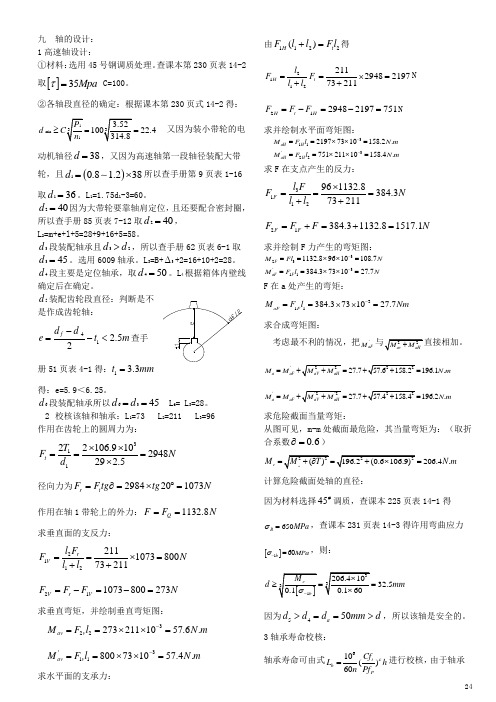 九 轴的设计:
1 高速轴设计:
①材料:选用 45 号钢调质处理。查课本第 230 页表 14-2
取[τ]=35Mpa C=100。
②各轴段直径的确定:根据课本第 230 页式 14-2 得:
d min ≥ C ∛(P₁/n₁) = 100∛(3.52/314.8) = 22.4 又因为装小带轮的电
动机轴径 d = 38,又因为高速轴第一段轴径装配大带
轮,且 d₁ = (0.8–1.2)×38 所以查手册第 9 页表 1-16
取 d₁ = 36。L₁=1.75d₁-3=60。
d₂ = 40 因为大带轮要靠轴肩定位,且还要配合密封圈,
所以查手册 85 页表 7-12 取 d₂ = 40,
L₂=m+e+l+5=28+9+16+5=58。
d₃ 段装配轴承且 d₃ > d₂,所以查手册 62 页表 6-1 取
d₃ = 45。选用 6009 轴承。L₃=B+Δ₃+2=16+10+2=28。
d₄ 段主要是定位轴承,取 d₄ = 50。L₄ 根据箱体内壁线
确定后在确定。
d₅ 装配齿轮段直径:判断是不
是作成齿轮轴:
e = (d_f − d₄)/2 − t₁ < 2.5m 查手
册 51 页表 4-1 得:t₁ = 3.3mm
得:e=5.9<6.25。
d₆ 段装配轴承所以 d₆ = d₃ = 45 L₆= L₃=28。
2 校核该轴和轴承:L₁=73 L₂=211 L₃=96
作用在齿轮上的圆周力为:
F_t = 2T₁/d₁ = (2×106.9×10³)/(29×2.5) = 2948N
径向力为 F_r = F_t tg∂ = 2984×tg20° = 1073N
作用在轴 1 带轮上的外力:F = F_Q = 1132.8N
求垂直面的支反力:
F₁V = l₂F_r/(l₁+l₂) = 211/(73+211) ×1073 = 800N
F₂V = F_r − F₁V = 1073 − 800 = 273N
求垂直弯矩,并绘制垂直弯矩图:
M_av = F₂v l₂ = 273×211×10⁻³ = 57.6N.m
M'_av = F₁v l₁ = 800×73×10⁻³ = 57.4N.m
求水平面的支承力:
由 F₁H(l₁+l₂) = F_t l₂ 得
F₁H = l₂/(l₁+l₂) F_t = 211/(73+211) ×2948 = 2197 N
F₂H = F_t − F₁H = 2948 − 2197 = 751N
求并绘制水平面弯矩图:
M_aH = F₁H l₁ = 2197×73×10⁻³ = 158.2N.m
M'_aH = F₂H l₂ = 751×211×10⁻³ = 158.4N.m
求 F 在支点产生的反力:
F₁F = l₃F/(l₁+l₂) = 96×1132.8/(73+211) = 384.3N
F₂F = F₁F + F = 384.3+1132.8 = 1517.1N
求并绘制 F 力产生的弯矩图:
M₂F = Fl₃ = 1132.8×96×10⁻³ = 108.7N
M_aF = F₁F l₁ = 384.3×73×10⁻³ = 27.7N
F 在 a 处产生的弯矩:
M_aF = F₁F l₁ = 384.3×73×10⁻³ = 27.7Nm
求合成弯矩图:
考虑最不利的情况,把 M_aF 与 √(M²_av + M²_aH) 直接相加。
M_a = M_aF + √(M²_av + M²_aH) = 27.7 + √(57.6² + 158.2²) = 196.1N.m
M'_a = M_aF + √(M'²_av + M'²_aH) = 27.7 + √(57.4² + 158.4²) = 196.2N.m
求危险截面当量弯矩:
从图可见,m-m 处截面最危险,其当量弯矩为:(取折
合系数 ∂ = 0.6)
M_e = √(M²_a + (∂T)²) = √(196.2² + (0.6×106.9)²) = 206.4N.m
计算危险截面处轴的直径:
因为材料选择 45# 调质,查课本 225 页表 14-1 得
σ_B = 650MPa,查课本 231 页表 14-3 得许用弯曲应力
[σ₋₁b] = 60MPa,则:
d ≥ ∛(M_e/(0.1[σ₋₁b])) = ∛(206.4×10³/(0.1×60)) = 32.5mm
因为 d₅ > d₄ = d_a = 50mm > d,所以该轴是安全的。
3 轴承寿命校核:
轴承寿命可由式 L_h = 10⁶/60n (Cf_t/Pf_P)^ε h 进行校核,由于轴承
24